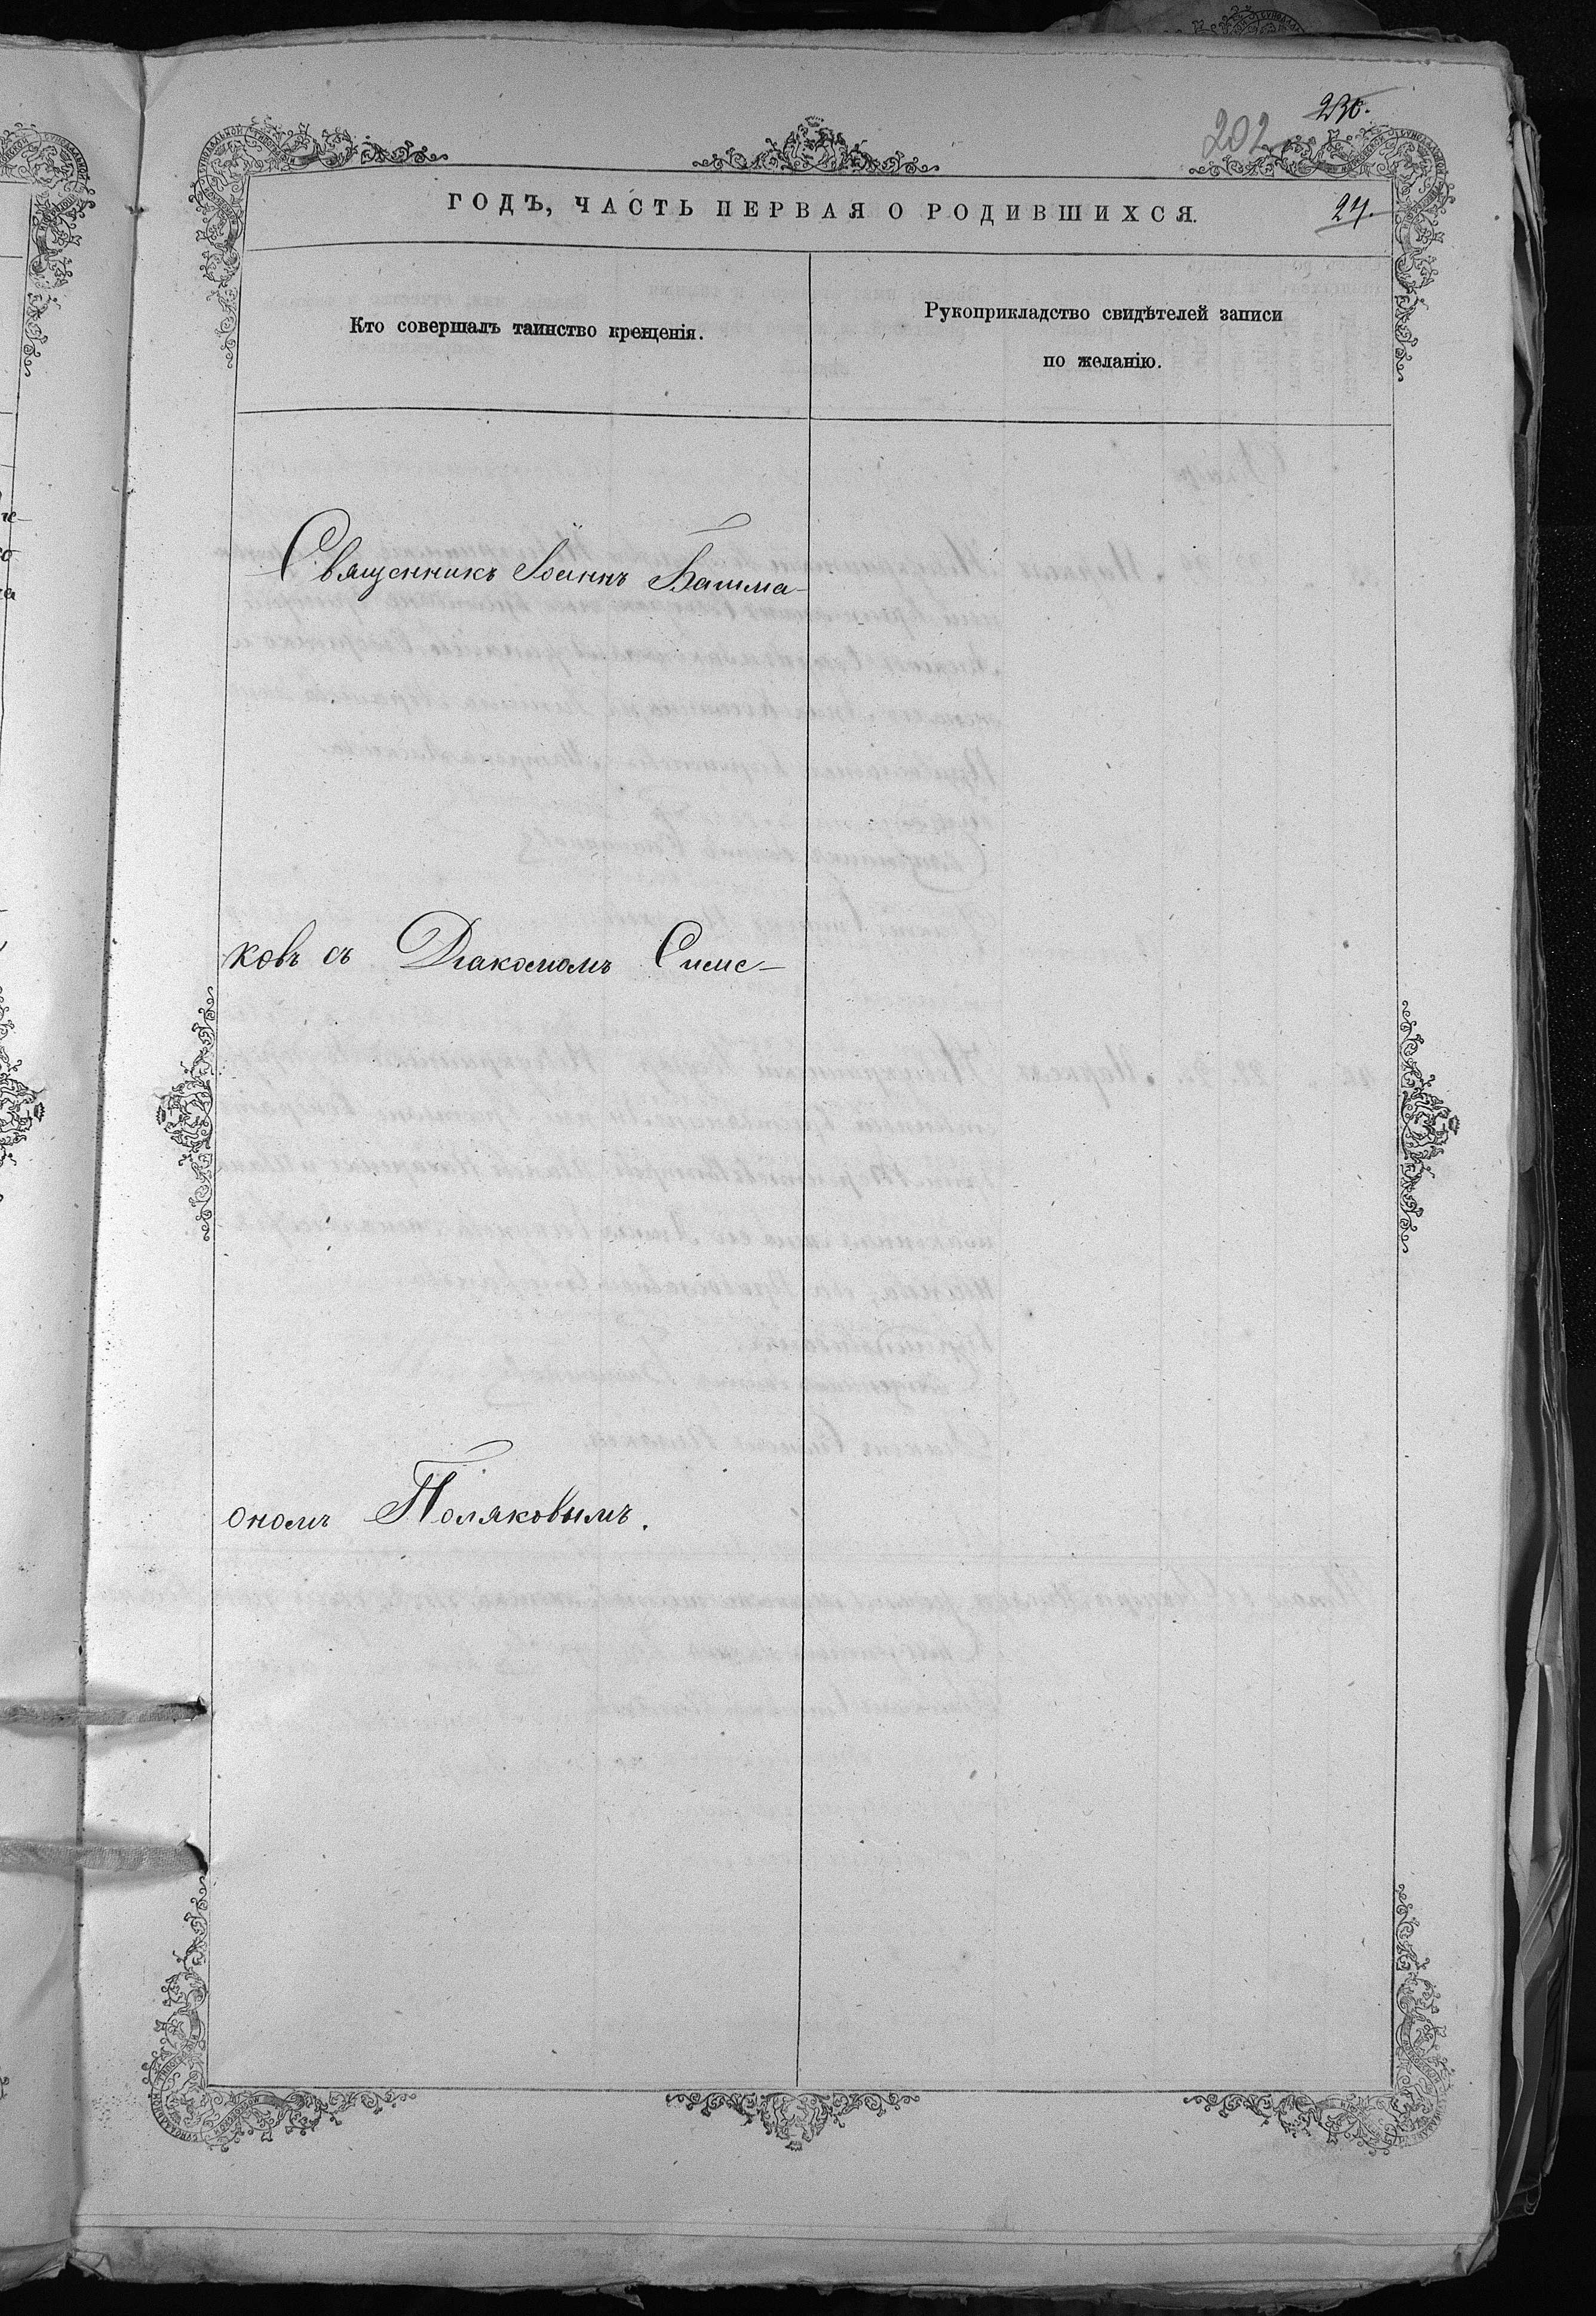 236.
202
ГОДЪ, ЧАСТЬ ПЕРВАЯ О РОДИВШИХСЯ.
24.
Кто совершалъ таинство крещенія.
Рукоприкладство свидѣтелей записи
по желанію.
Священникъ Іоаннъ Башма-
ковъ съ Діакономъ Симе-
ономъ Поляковымъ.